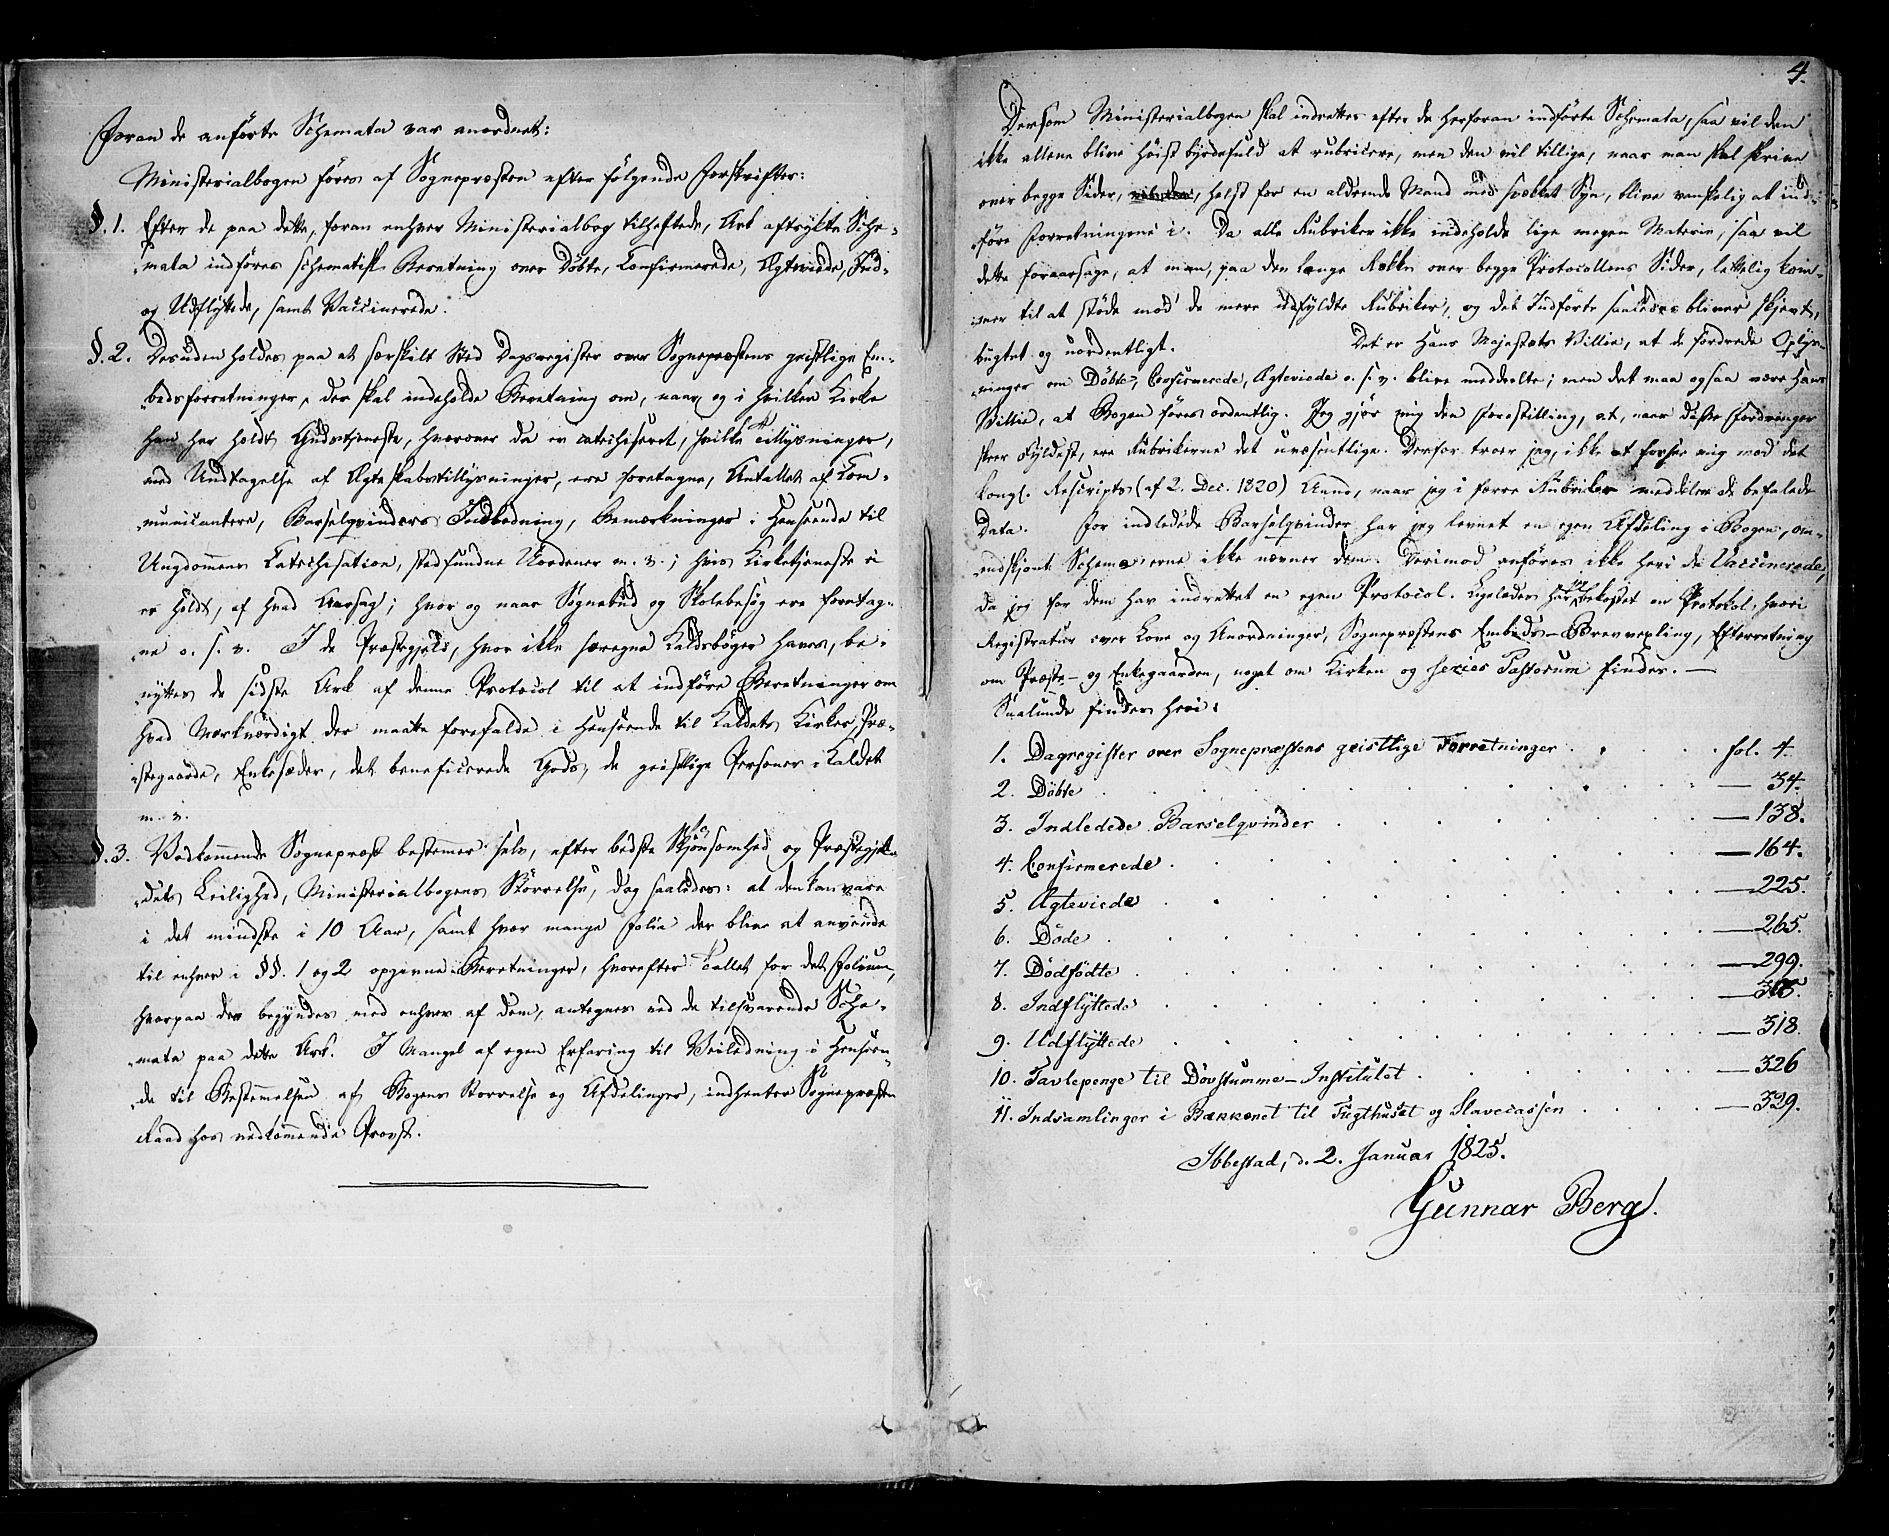 Foran de anførte Schemata var anordnet:
Ministerialbogen føres af Sognepræsten efter følgende Forskrifter:
§. 1. Efter de paa dette, foran enhver Ministerialbog tilheftede, Ark aftrykte Sche-
mata indføres schematisk Beretning over Døbte, Confirmerede, Ægteviede, Ind-
og Udflyttede, samt Vaccinerede.
§. 2. Desuden holdes paa et særskilt Sted Dagsregister over Sognepræstens geistlige Em-
bedsforretninger, der skal indeholde Beretning om, naar og i hvilken Kirke
han har holdt Gudstjeneste, hvorover da er catechiseret, hvilke Tillysninger,
med Undtagelse af Ægteskabstillysninger, ere foretagne, Antallet af Com-
municantere, Barselqvinders Indledning, Bemærkninger i Henseende til
Ungdommens Catechisation, stedfundne Uordener m. v.; hvis Kirketjeneste ei
er holdt, af hvad Aarsag; hvor og naar Sognebud og Skolebesøg ere foretag-
ne o. s. v. I de Præstegjeld, hvor ikke særegne Kaldsbøger haves, be-
nyttes de sidste Ark af denne Protocol til at indføre Beretninger om
hvad Mærkværdigt der maatte forefalde i Henseende til Kaldets Kirker, Præ-
stegaarde, Enkesæder, det beneficerede Gods, de geistlige Personer i Kaldet
m. v.
§. 3. Vedkommende Sognepræst bestemmer selv, efter bedste Skjønsomhed og Præstegjel-
dets Leilighed, Ministerialbogens Størrelse, dog saaledes: at den kan vare
i det mindste i 10 Aar, samt hvor mange Folia der blive at anvende
til enhver i §§. 1 og 2 opgivne Beretninger, hvorefter Tallet for det Folium,
hvorpaa der begyndes med enhver af dem, antegnes ved de tilsvarende Sche-
mata paa dette Ark. I Mangel af egen Erfaring til Veiledning i Henseen-
de til Bestemmelsen af Bogens Størrelse og Afdelinger, indhenter Sognepræsten
Raad hos vedkommende Provst.
4.
Dersom Ministerialbogen skal indrettes efter de herforan indførte Schemata, saa vil den
ikke allene blive høist byrdefuld at rubricere, men den vil tillige, naar man skal skrive
over begge Sider, helst for en aldrende Mand med svækket Syn, blive vanskelig at ind-
føre Forretningerne i. Da alle Rubriker ikke indeholde lige megen Materie, saa vil
dette foraarsage, at man, paa den lange Række over begge Protocollens Sider, lettelig kom-
mer til at støde mod de mere udfyldte Rubriker, og det Indførte saaledes bliver skjevt,
bugtet og uordentligt. Det er Hans Majestæts Villie, at de fordrede Oplys-
ninger om Døbte, Confirmerede, Ægteviede o. s. v. blive meddelte; men det maa ogsaa være Hans
Villie, at Bogen føres ordentlig. Jeg gjør mig den Forestilling, at, naar disse Fordringer
skeer Fyldest, ere Rubrikerne det uvæsentlige. Derfor troer jeg, ikke at forsee mig mod det
kongl. Rescripts (af 2. Dec. 1820) Aand, naar jeg i færre Rubriker meddeler de befalede
Data. For indledede Barselqvinder har jeg levnet en egen Afdeling i Bogen, om-
endskjønt Schemaerne ikke nævner dem. Derimod anføres ikke heri de Vaccinerede,
da jeg for dem har indrettet en egen Protocol. Ligeledes har jeg bekostet en Protokol, hvori
Registratur over Love og Anordninger, Sognepræstens Embeds-Brevvexling, Efterretning
om Præste- og Enkegaarden, noget om Kirken og series Pastorum findes. —
Saalunde findes heri:
1. Dagregister over Sognepræstens geistlige Forretninger . . . . fol. 4.
2. Døbte . . . . — 34.
3. Indledede Barselqvinder . . . . — 138.
4. Confirmerede . . . . — 164.
5. Ægteviede . . . . — 225.
6. Døde . . . . — 265.
7. Dødfødte . . . . — 299.
8. Indflyttede . . . .
9. Udflyttede . . . . — 318.
10. Tavlepenge til Døvstumme-Institutet . . . . — 326
11. Indsamlinger i Bækkenet til Tugthuset og Slavecassen . . . . — 329.
Ibbestad, d. 2. Januar 1825.
Gunnar Berg.